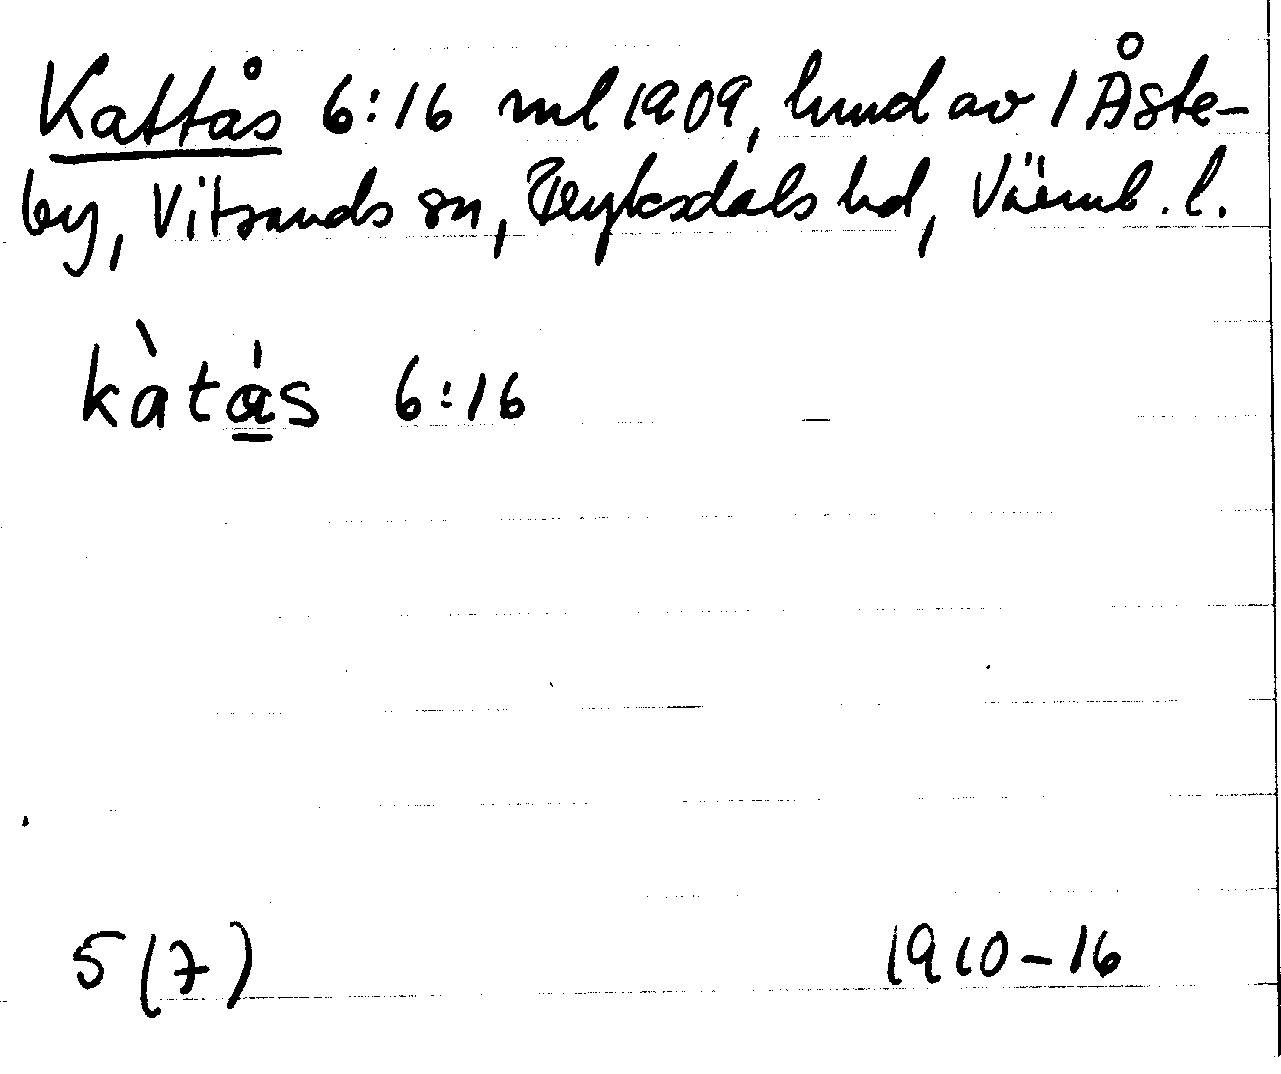 Kattås 6:16 ml 1909, hmd av 1 Åste-
by, Vitsands sn, Fryksdals hd, Värml. l.
kàtås 6:16
5 (7) 1910-16